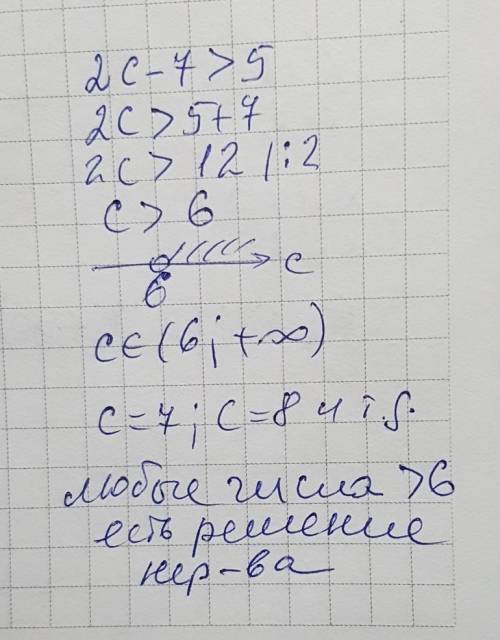 2c - 7 > 5
2c > 5+7
2c > 12 |:2
c > 6
c
6
c∈(6; +∞)
c=7; c=8 и т.д.
любые числа >6
есть решение
нер-ва